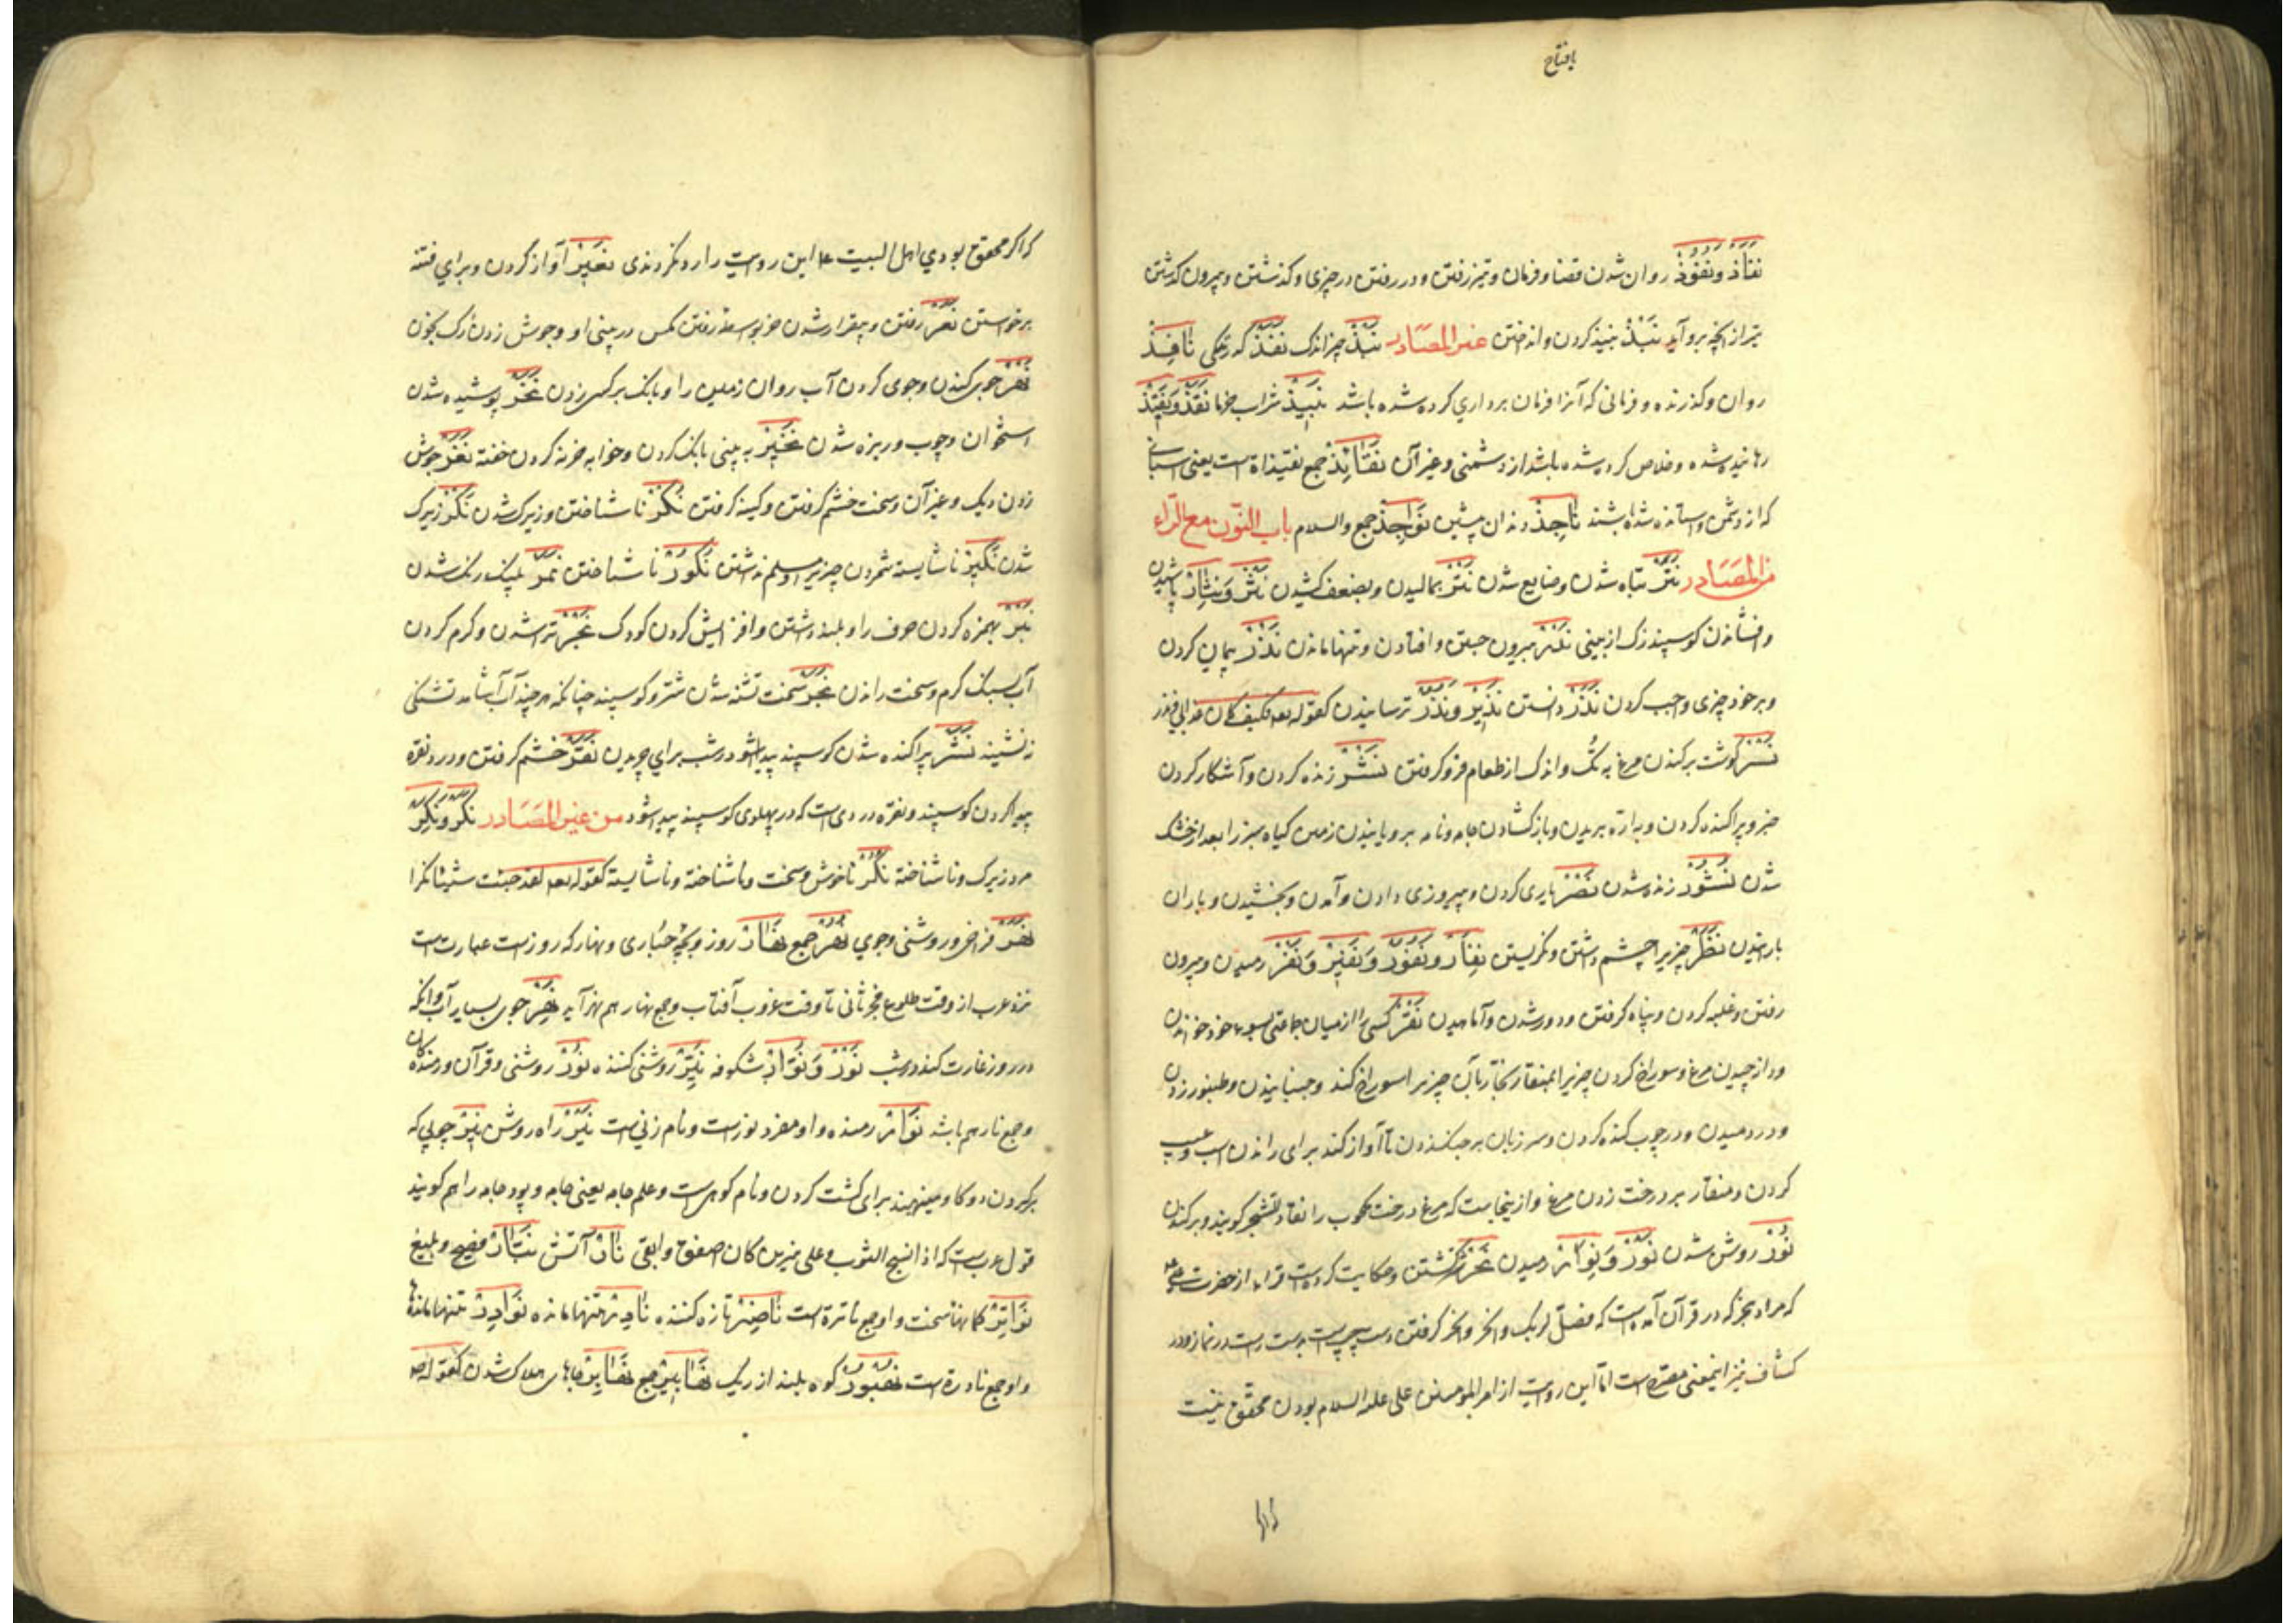 نفاذ ونفوذ روان شدن قضا و فرمان و تیز رفتن و در رفتن در چیزی و گذشتن و بیرون گذشتن
تیر از انچه برو آید نبذ نبیذ کردن و انداختن غیر المصادر نبذ چیز اندک نفذ نافذ
روان و گذرنده و فرمانی که آنرا فرمان برداری کرده شده باشد نبیذ شراب خرما نقذ ونقیذ
رهانیده شده و خلاص کرده شده باشد از دشمنی و غیر آن نقائذ جمع نقیذاة است یعنی اسبانی
که از دشمن واستانده شده باشند ناجذ دندان پیشین نواجذ جمع والسلام باب النون مع الراء
من المصادر نتر تباه شدن و ضایع شدن نتر بمالیدن و بضعف کشیدن نثر ونثار پاشیدن
و افشاندن گوسپند از بینی ندر بیرون جستن و افتادن و تنها ماندن نذر پیمان کردن
و بر خود چیزی واجب کردن نذر دانستن نذیر ونذر ترسانیدن کقوله تعه فکیف کان عذابی ونذر
نسر گوشت برکندن مرغ به تک و اندک از طعام فرو گرفتن نشر زنده کردن و آشکار کردن
خبر و پراکنده کردن و به اره بریدن و باز گشادن جامه و نامه برویانیدن زمین گیاه سبز را بعد از خشک
شدن نشور زنده شدن نصر یاری کردن و پیروزی دادن و آمدن و بخشیدن و باران
بارانیدن نظر چیزیرا چشم داشتن و نگریستن نفار ونفور ونفیر ونفر رمیدن و بیرون
رفتن و غلبه کردن و پناه گرفتن و دور شدن و آماهیدن نقر کسی را از میان جماعتی بسوء خود خواندن
ودانه چیدن مرغ و سوراخ کردن چیزیرا بمنقار تا بآن چیز را سوراخ کند و جنبانیدن و طنبور زدن
و در دمیدن و در چوب کنده کردن و سر زبان بر حنک زدن تا آواز کند برای راندن اسب و عیب
کردن و منقار بر درخت زدن مرغ و ازینجاست که مرغ درخت کوب را نقار الشجر گویند و برکندن
نور روشن شدن نور ونوار رمیدن نحر کشتن و حکایت کرده است از حضرت
که مراد بنحر که در قرآن آمده است که فصل لربک وانحر وانحر گرفتن دست چپ است بدست راست در نماز و در
کشاف نیز اینمعنی مقرر است اما این روایت از امیر المومنین علی علیه السلام بودن محقق نیست
که اگر محقق بودی اهل البیت این روایت را رد نکردندی نعیر آواز کردن و برای فتنه
برخواستن نعر رفتن و بیقرار شدن خر بواسطه رفتن مگس در بینی او و جوش زدن رگ بخون
نهر جوی کندن و جوی کردن آب روان زمین را و بانگ بر کسی زدن نخر پوسیده شدن
استخوان و چوب و ریزه شدن نخیر به بینی بانگ کردن و خوابه خرنه کردن خفته نغر جوش
زدن دیگ و غیر آن و سخت خشم گرفتن و کینه گرفتن نکر ناشناختن و زیرک شدن نکر زیرک
شدن نکیر ناشایسته شمردن چیزیرا و مسلم نداشتن نکور ناشناختن نمر پلنگ رنگ شدن
نبر بهمزه کردن حرف را و بلند داشتن و افزایش کردن کودک نجر تراشیدن و گرم کردن
آب بسنگ گرم و سخت راندن نجر سخت تشنه شدن شتر و گوسپند چنانکه هر چند آب آشامد تشنگی
نه نشیند نشر پراکنده شدن گوسپند در شب برای چریدن نقر خشم گرفتن و درد نقره
پیدا کردن گوسپند و نقره دردی است که در پهلوی گوسپند پیدا شود من غیر المصادر نکر ونکر
مرد زیرک و ناشناخته نکر ناخوش و سخت و ناشناخته و ناشایسته کقوله تعه لقد جئت شیئا نکرا
نهر فراخی و روشنی و جوی نهر جمع نهار روز و بچه حباری و نهار که روز است عبارت است
نزد عرب از وقت طلوع فجر ثانی تا وقت غروب آفتاب و جمع نهار هم نهر آید نهر جوی بسیار آب و انکه
در روز غارت کند و در شب نور ونوار شکوفه نیر روشنی کننده نور روشنی و قرآن و رمندگان
و جمع نار هم باشد نوار رمنده و او مفرد نور است و نام زنی است نیر راه روشن نیر چوبی که
بر گردن دو گاو میش نهند برای کشت کردن و نام کوهی است و علم جامه یعنی جامه و پود جامه را هم گویند
قول عرب است که اذا نسج الثوب علی نیرین کان اصفق وابقی نار آتش نبار فصیح و بلیغ
نواتر کمانهاء سخت و او جمع ناترة است ناضر تازه کننده نادر تنها مانده نوادر تنها ماندها
و او جمع نادرة است نهبور کوه بلند از ریگ نهابیر جمع نهابر جاهای هلاک شدن کقوله ص